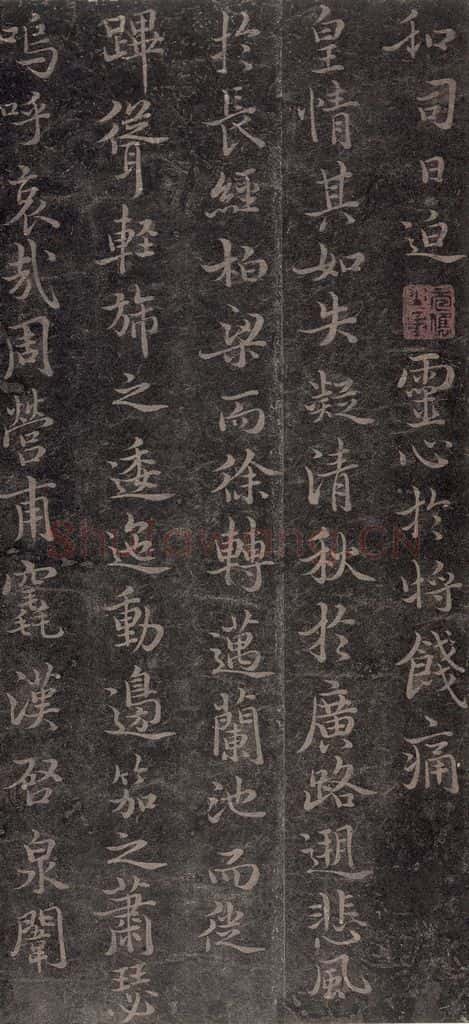 和司日迫靈心於將餞痛
皇情其如失凝清秋於廣路遡悲風
於長經柏梁而徐轉邁蘭池而從
蹕聳軽旆之逶迤動邊笳之蕭瑟
嗚呼哀哉周營甫竁漢啓泉闈
ShuFaWang.CN